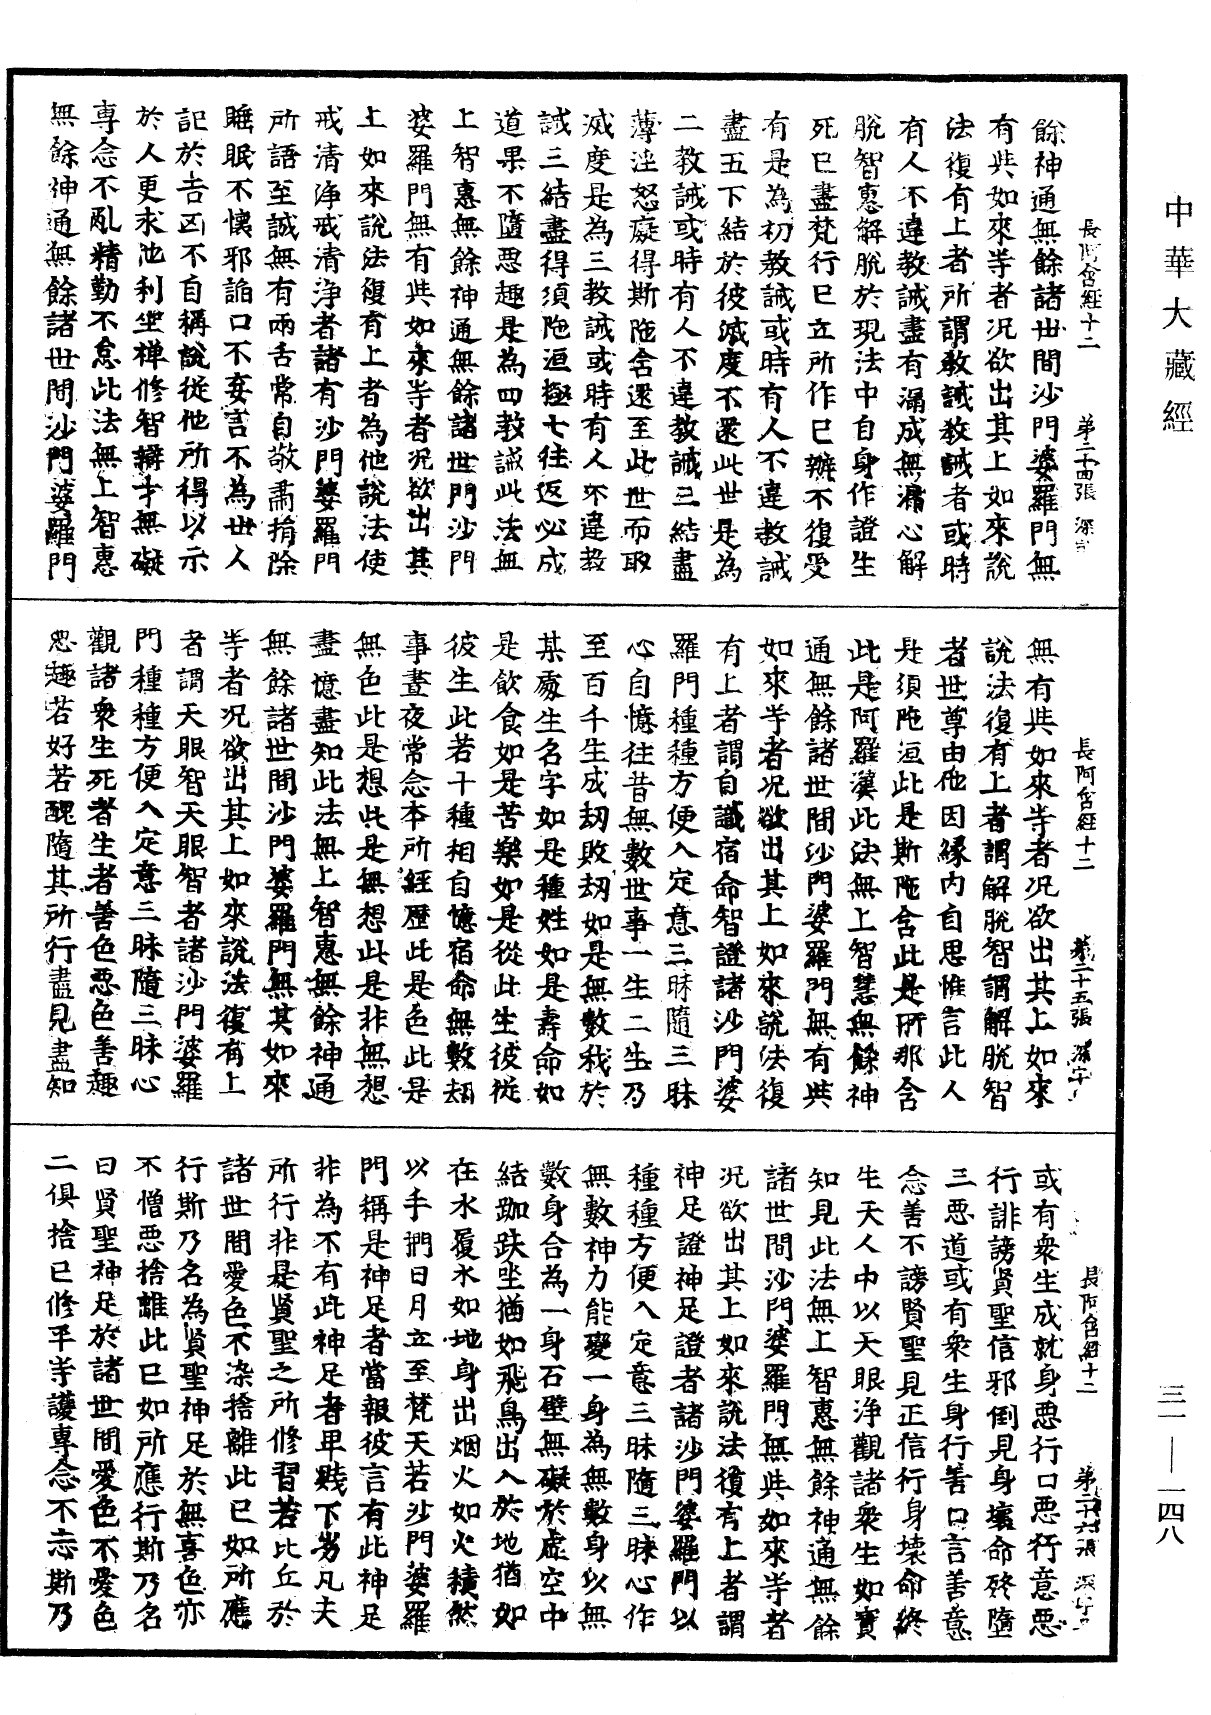 中華大藏經
三一—一四八
長阿含經十二 第二十四張 深
餘神通無餘諸世間沙門婆羅門無
有與如來等者况欲出其上如來說
法復有上者所謂教誡教誡者或時
有人不違教誡盡有漏成無漏心解
脫智惠解脫於現法中自身作證生
死已盡梵行已立所作已辦不復受
有是為初教誡或時有人不違教誡
盡五下結於彼滅度不還此世是為
二教誡或時有人不違教誡三結盡
薄淫怒癡得斯陁含還至此世而取
滅度是為三教誡或時有人不違教
誡三結盡得須陁洹極七往返必成
道果不墮惡趣是為四教誡此法無
上智惠無餘神通無餘諸世門沙門
婆羅門無有與如來等者况欲出其
上如來說法復有上者為他說法使
戒清淨戒清淨者諸有沙門婆羅門
所語至誠無有兩舌常自敬肅捐除
睡眠不懷邪諂口不妄言不為世人
記於吉凶不自稱說從他所得以示
於人更求池利坐禅修智辯才無礙
專念不亂精勤不怠此法無上智惠
無餘神通無餘諸世間沙門婆羅門
長阿含經十二 第二十五張 深字
無有與如來等者况欲出其上如來
說法復有上者謂解脫智謂解脫智
者世尊由他因緣內自思惟言此人
是須陁洹此是斯陁含此是阿那含
此是阿羅漢此法無上智慧無餘神
通無餘諸世間沙門婆羅門無有與
如來等者况欲出其上如來說法復
有上者謂自識宿命智證諸沙門婆
羅門種種方便入定意三昧隨三昧
心自憶往昔無數世事一生二生乃
至百千生成劫敗劫如是無數我於
某處生名字如是種姓如是壽命如
是飲食如是苦樂如是從此生彼從
彼生此若干種相自憶宿命無數劫
事晝夜常念本所經歷此是色此是
無色此是想此是無想此是非無想
盡憶盡知此法無上智惠無餘神通
無餘諸世間沙門婆羅門無其如來
等者况欲出其上如來說法復有上
者謂天眼智天眼智者諸沙門婆羅
門種種方便入定意三昧隨三昧心
觀諸衆生死者生者善色惡色善趣
惡趣若好若醜隨其所行盡見盡知
長阿含經十二 第二十六張 深
或有衆生成就身惡行口惡行意惡
行誹謗賢聖信邪倒見身壞命終墮
三惡道或有衆生身行善口言善意
念善不謗賢聖見正信行身壞命終
生天人中以天眼淨觀諸衆生如實
知見此法無上智惠無餘神通無餘
諸世間沙門婆羅門無與如來等者
况欲出其上如來說法復有上者謂
神足證神足證者諸沙門婆羅門以
種種方便入定意三昧隨三昧心作
無數神力能變一身為無數身以無
數身合為一身石壁無礙於虛空中
結跏趺坐猶如飛鳥出入於地猶如
在水履水如地身出烟火如火積然
以手捫日月立至梵天若沙門婆羅
門稱是神足者當報彼言有此神足
非為不有此神足者卑賤下劣凡夫
所行非是賢聖之所修習若比丘於
諸世間愛色不染捨離此已如所應
行斯乃名為賢聖神足於無喜色亦
不憎惡捨離此已如所應行斯乃名
曰賢聖神足於諸世間愛色不愛色
二俱捨已修平等護專念不忘斯乃